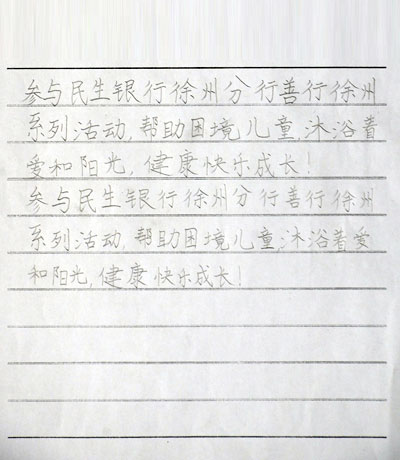 参与民生银行徐州分行善行徐州
系列活动,帮助困境儿童,沐浴着
爱和阳光,健康快乐成长!
参与民生银行徐州分行善行徐州
系列活动,帮助困境儿童,沐浴着爱
和阳光,健康快乐成长!